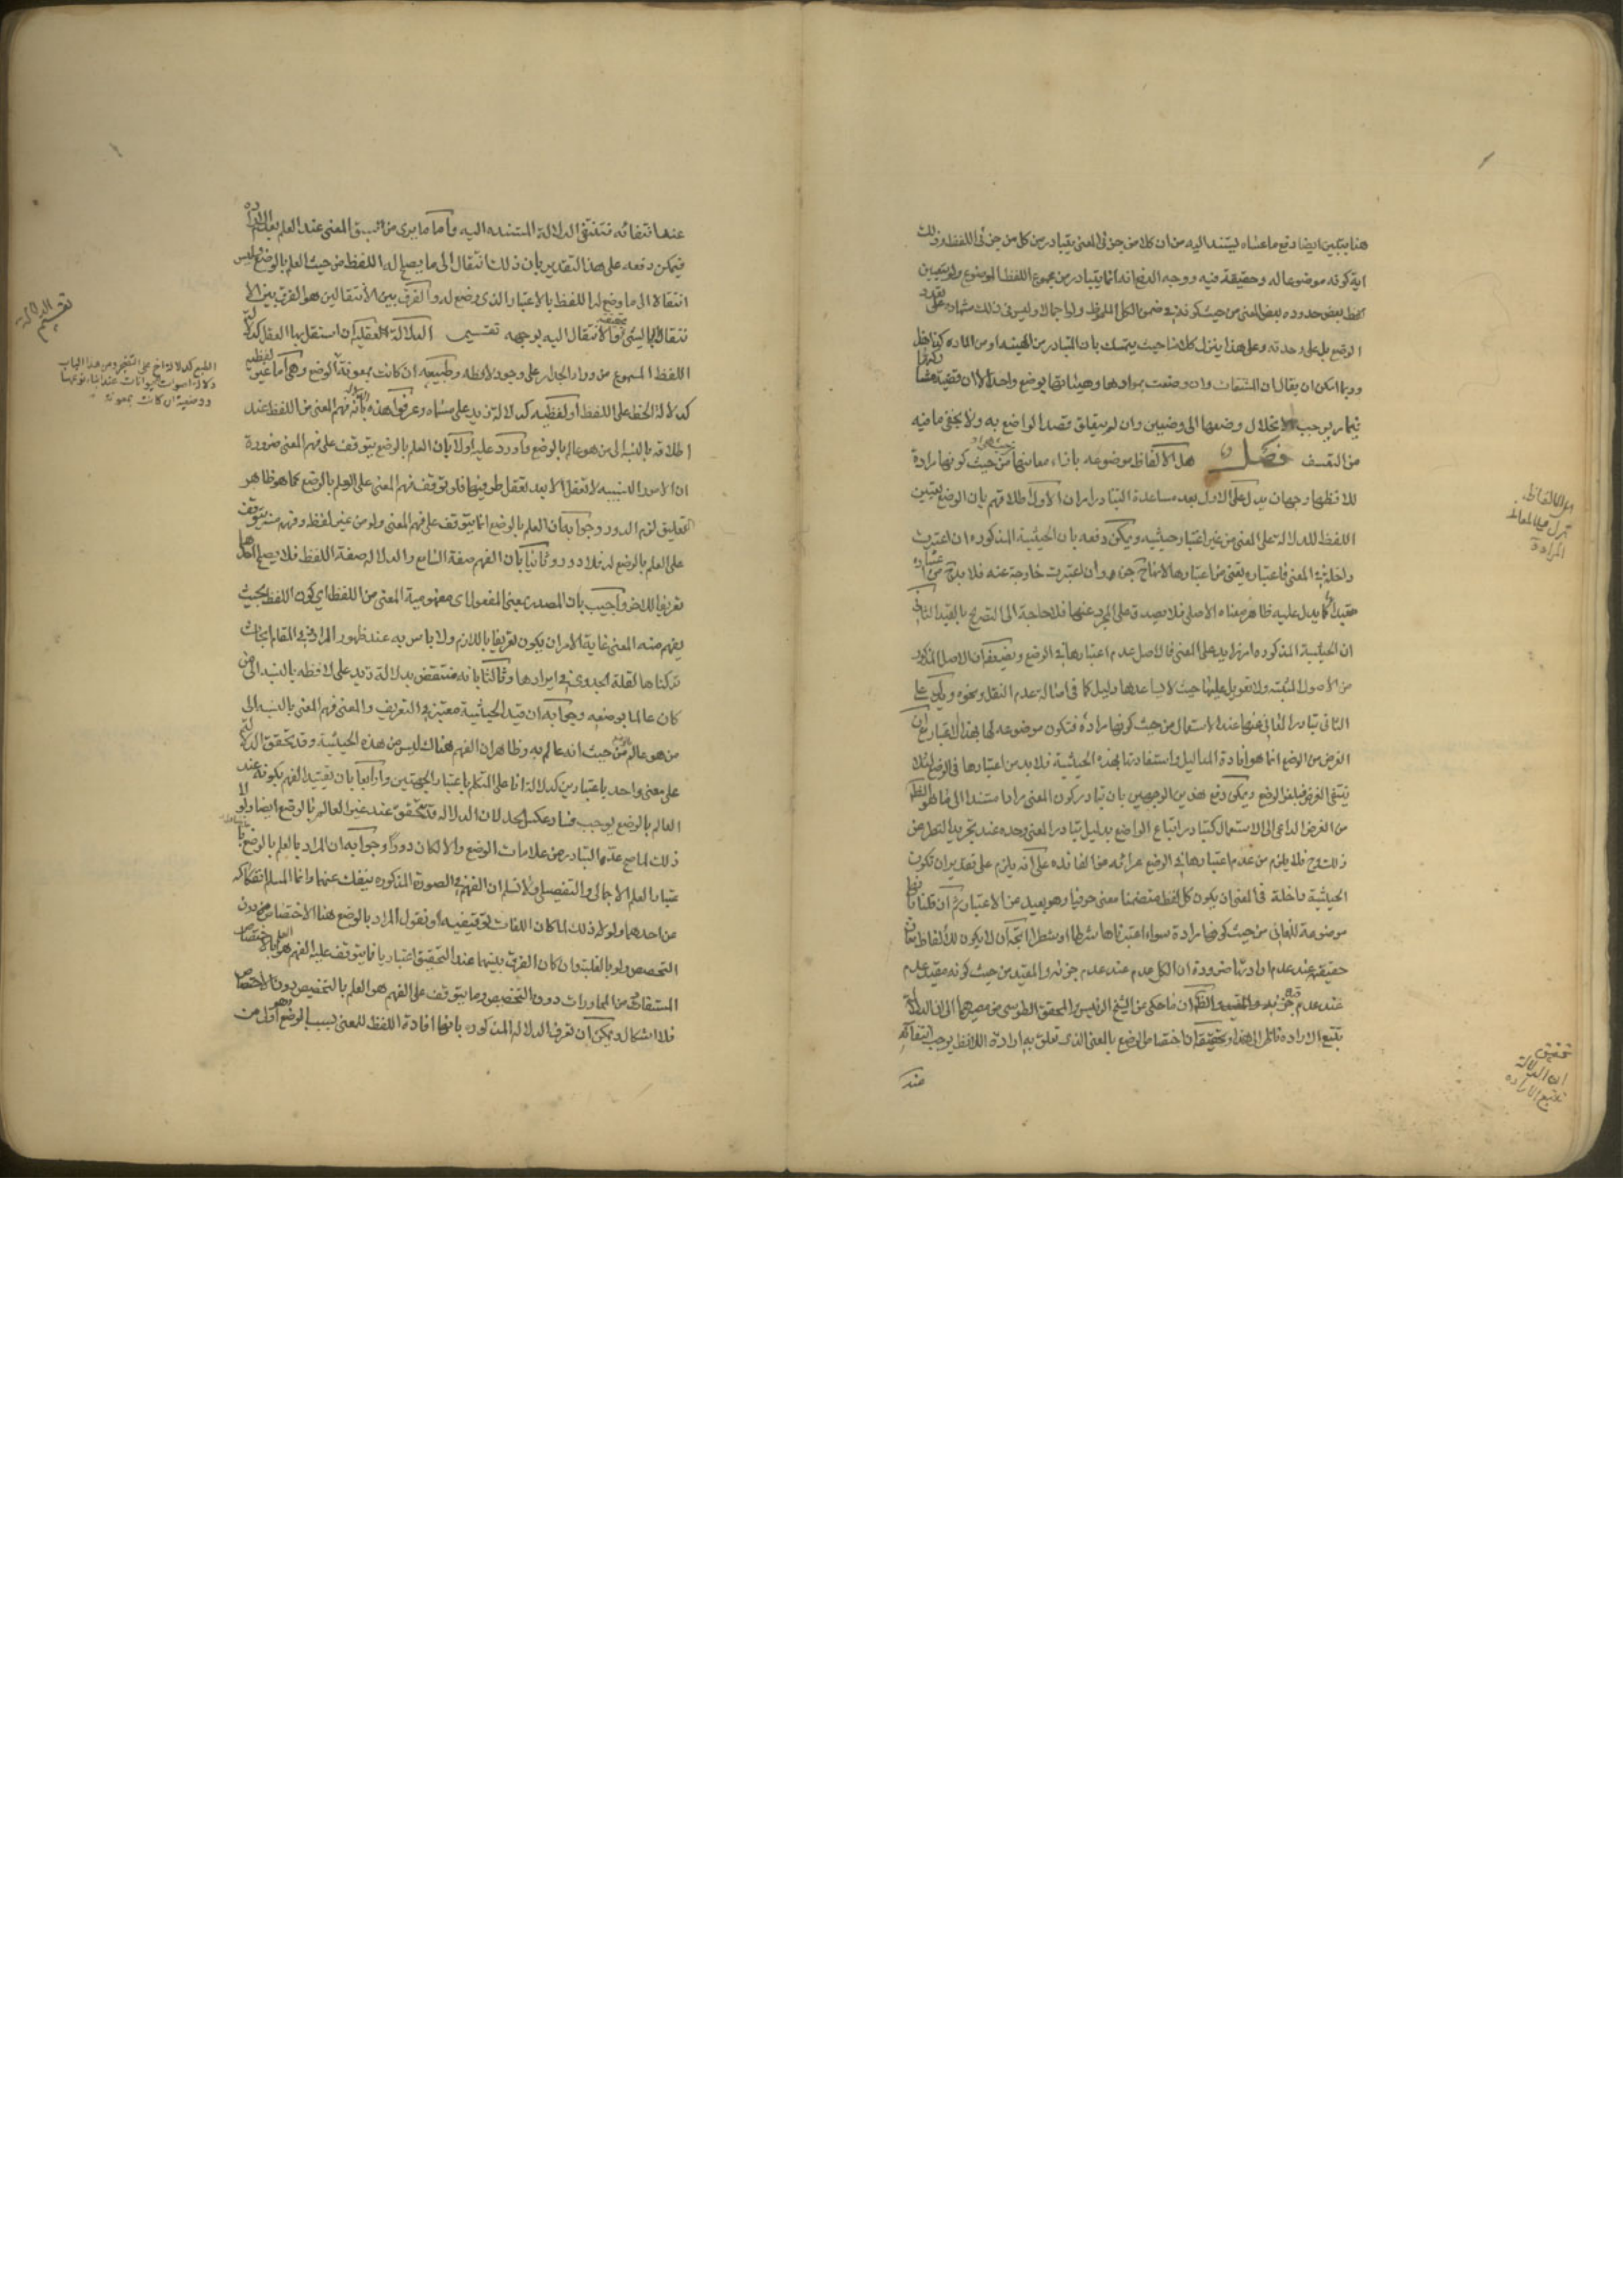 هنا يتبين ايضا دفع ما عساه يستند اليه من ان كلا من جزئى المعنى يتبادر من كل من جزئى اللفظ وذلك
اية كونه موضوعا له وحقيقة فيه ووجه الدفع انه انما يتبادر من مجموع اللفظ الموضوع ولو بتعيين
بعض حدوده بعض المعنى من حيث كونه فى ضمن الكل الملحوظ ولو اجمالا وليس فى ذلك شهادة على تعدد
الوضع بل على وحدته وعلى هذا ينزل كلامنا حيث يتمسك بان المتبادر من الهيئة او من المادة كذا
وربما امكن ان يقال ان المشتقات وان وضعت بموادها وهيئاتها بوضع واحد الا ان قضية
مما يوجب انحلال وضعها الى وضعين وان لم يتعلق قصد الواضع به ولا يخفى ما فيه
من التعسف فصل هل الالفاظ موضوعه بازاء معانيها من حيث هى او من حيث كونها مرادة
للافظها وجهان يدل على الاول بعد مساعدة التبادر امران الاول اطلاقهم بان الوضع تعيين
اللفظ للدلالة على المعنى من غير اعتبار حيثيه ويمكن دفعه بان الحيثية المذكوره ان اعتبرت
داخلة فى المعنى فاعتباره يغنى عن اعتبارها لانها ح جزءه وان اعتبرت خارجة عنه فلا
مقيدا كما يدل عليه ظاهر معناه الاصلى فلا يصدق على المجرد عنها فلا حاجة الى التصريح بالقيد الثانى
ان الحيثية المذكوره امر زايد على المعنى فالاصل عدم اعتبارها فى الوضع ويضعفه ان الاصل المذكور
من الاصول المثبته ولا تعويل عليها حيث لا يساعدها دليل كما فى اصالة عدم النقل ونحوه ويدل على
الثانى تبادر المعانى منها عند الاستعمال من حيث كونها مراده فتكون موضوعه لها بهذا الاعتبار مع ان
الغرض من الوضع انما هو افادة المداليل واستفادتها بهذه الحيثية فلا بد من اعتبارها فى الوضع لئلا
ينتفى الغرض فيلغو الوضع ويمكن دفع هذين الوجهين بان تبادر كون المعنى مرادا مستندا الى ما هو الظاهر
من الغرض الداعى الى الاستعمال كتبادر اتباع الواضع بدليل تبادر المعنى وحده عند تجريد النظر عن
ذلك وح فلا يلزم من عدم اعتبارها فى الوضع عرائه عن الفائده على انه يلزم على تقدير ان تكون
الحيثية داخلة فى المعنى ان يكون كل لفظ متضمنا معنى حرفيا وهو بعيد عن الاعتبار ثم ان قلنا بانها
موضوعة للمعانى من حيث كونها مرادة سواء اعتبرناها شرطا او شطرا اتجه ان لا يكون للالفاظ معان
حقيقية عند عدم ارادتها ضرورة ان الكل عدم عند عدم جزئه والمقيد من حيث كونه مقيد عدم
عند عدم قيده والظاهر ان ما حكى عن الشيخ الرئيس والمحقق الطوسى من مصيرهما الى ان الدلالة
تتبع الارادة ناظر الى هذا وتحقيقه ان اختصاص الوضع بالمعنى الذى تعلق به ارادة اللافظ يوجب انتفائه
عند
تحقيق ان الدلالة تتبع الارادة
عند انتفائه فتنتفى الدلالة المستنده اليه واما ما يرى من سبق المعنى عند العلم بعدم الارادة
فيمكن دفعه على هذا التقدير بان ذلك انتقال الى ما يصلح له اللفظ من حيث العلم بالوضع وليس
انتقالا الى ما وضع له اللفظ بالاعتبار الذى وضع له والفرق بين الانتقالين هو الفرق بين الا
نتقال الى الشئ والانتقال اليه بوجهه تقسيم الدلالة عقلية ان استقل بها العقل كدلالة
اللفظ المسموع من وراء الجدار على وجود لافظه وطبيعيه ان كانت بمعونة الوضع وهى اما غير لفظيه
كدلالة الخط على اللفظ او لفظيه كدلالة زيد على مسماه وعرفوا هذه بانه فهم المعنى من اللفظ عند
اطلاقه بالنسبة الى من هو عالم بالوضع واورد عليه اولا بان العلم بالوضع يتوقف على فهم المعنى ضرورة
ان الامور النسبيه لا تعقل الا بعد تعقل طرفيها فلو توقف فهم المعنى على العلم بالوضع كما هو ظاهر
التعليق لزم الدور وجوابه ان العلم بالوضع انما يتوقف على فهم المعنى ولو من غير لفظه وفهمه منه يتوقف
على العلم بالوضع له فلا دور وثانيا بان الفهم صفة السامع والدلاله صفة اللفظ فلا يصح احدهما
تعريفا للاخر واجيب بان المصدر بمعنى المفعول اى مفهومية المعنى من اللفظ اى كون اللفظ بحيث
يفهم منه المعنى غاية الامر ان يكون تعريفا باللازم ولا باس به عند ظهور المراد وفى المقام ابحاث
تركناها لقلة الجدوى فى ايرادها وثالثا بانه منتقض بدلالة زيد على لافظه بالنسبة الى من
كان عالما بوضعه وجوابه ان قيد الحيثية معتبر فى التعريف والمعنى فهم المعنى بالنسبة الى
من هو عالم بالوضع من حيث انه عالم به وظاهر ان الفهم هناك ليس من هذه الحيثية وقد تحقق الدلالة
على معنى واحد باعتبارين كدلالة انا على المتكلم باعتبار الجهتين ورابعا بان تقييد الفهم بكونه عند
العالم بالوضع يوجب فساد عكس الحد لان الدلاله قد تتحقق عند غير العالم بالوضع ايضا ولولا
ذلك لما صح عدهم التبادر من علامات الوضع والا لكان دورا وجوابه ان المراد بالعلم بالوضع ما
يتناول العلم الاجمالى والتفصيلى ولا نسلم ان الفهم فى الصورة المذكوره ينفك عنهما وانما المسلم انفكاكه
عن احدهما ولولا ذلك لما كان اللغات توقيفيه او نقول المراد بالوضع هنا الاختصاص دون
التخصيص ولو بالغلبة وان كان الفرق بينهما عند التحقيق اعتباريا فما يتوقف عليه الفهم هو العلم بالاختصاص
المستفاد من المحاورات دون التخصيص وما يتوقف على الفهم هو العلم بالتخصيص دون الاختصاص
فلا اشكال ويمكن ان تعرف الدلاله المذكوره بانها افادة اللفظ للمعنى بسبب الوضع وهو اولى من
تقسيم الدلالة
الطبع كدلالة اخ على التضجر ومن هذا الباب
دلالة اصوات الحيوانات عند ابناء نوعها
ووضعية ان كانت بمعونة